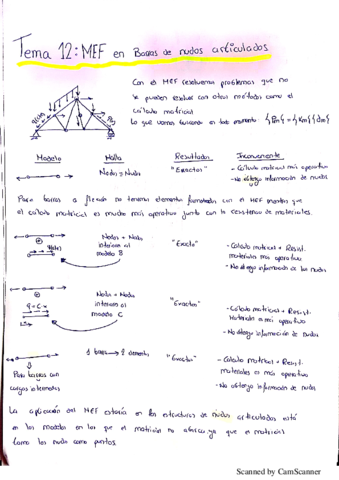 Tema 12: MEF en Barras de nudos articulados
Con el MEF resolvemos problemas que no
se pueden resolver con otros métodos como el
cálculo matricial
Lo que vamos buscando en todo momento
Modelo Malla Resultados Inconveniente
Nodos y Nudos "Exactos" - Cálculo matricial más operativo
- No obtengo información de nudos
Para barras a flexión no tenemos elementos formulados con el MEF mientras que
el cálculo matricial es mucho más operativo junto con la resistencia de materiales.
Nodos + Nodo
interior al
modelo B
"Exacto"
- Cálculo matricial + Resist.
materiales más operativo
- No obtengo información de los nudos
q = C·x
Nodos + Nodos
interior al
modelo C
"Exactos"
- Cálculo matricial + Resist.
materiales más operativo
- No obtengo información de nudos
Para barras con
cargas intermedias
1 barra → 2 elementos
"Exactos"
- Cálculo matricial + Resist.
materiales es más operativo
- No obtengo información de nudos
La aplicación del MEF estaría en las estructuras de nudos articulados está
en los modelos en los que el matricial no abarca, ya que el matricial
toma los nudos como puntos.
Scanned by CamScanner